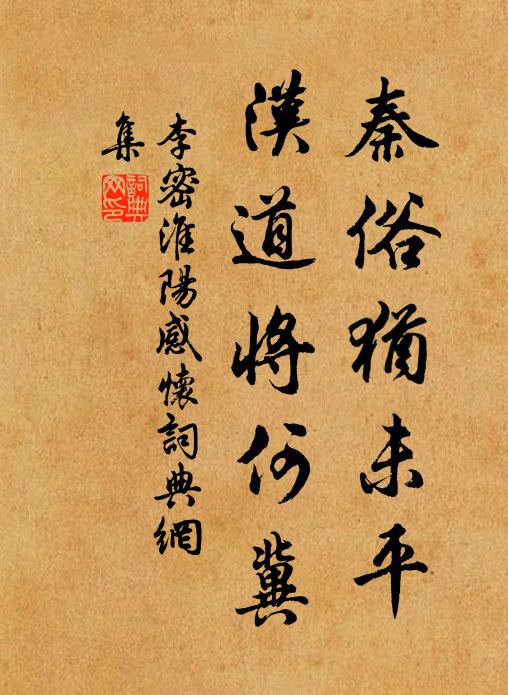 秦俗猶未平
漢道將何冀
李密淮陽感懷詞典網
集
詞典
网印